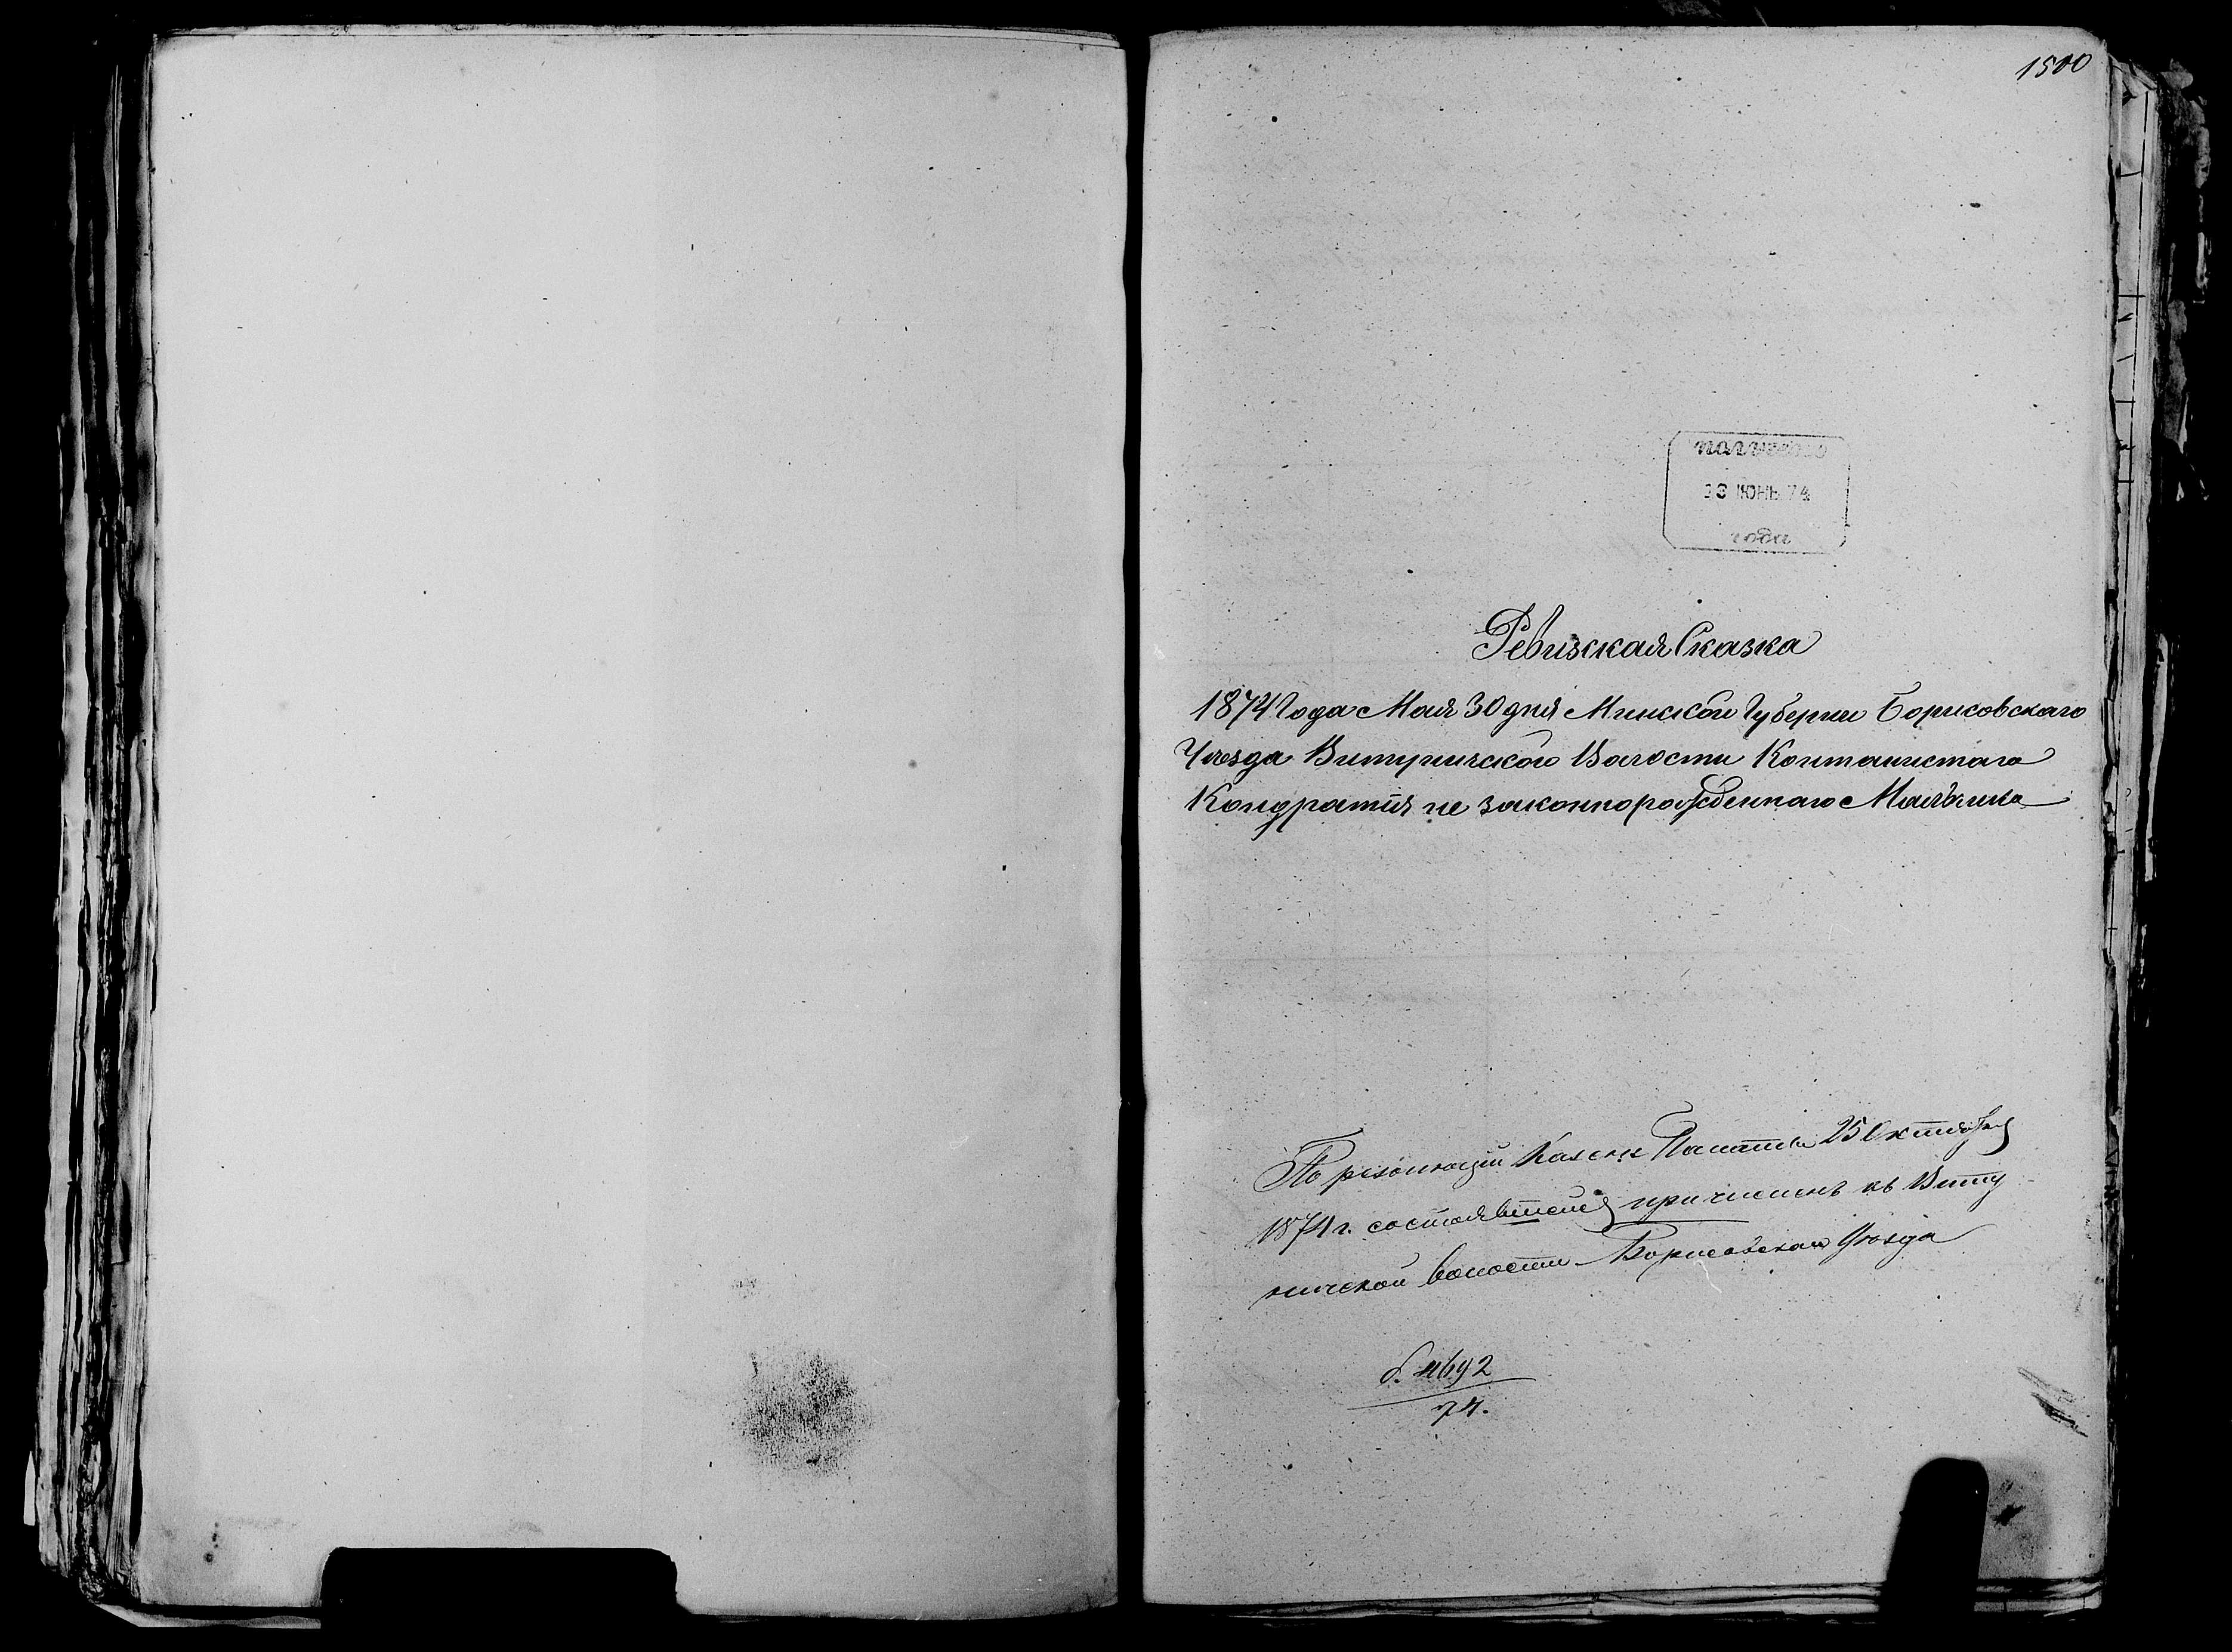 1500
получено
ИЮНЬ 74
года
Ревизская Сказка
1874 Года Мая 30 дня Минской Губернии Борисовскаго
Уезда Витуничской Волости Кантонистаго
Кондратия не законнорожденнаго Мальчика
По резолюціи Казен: Палаты 25 Октября
1874 г. состоявшейся причисленъ къ Виту
ничской волости Борисовскаго Уѣзда
б. 4692
74.